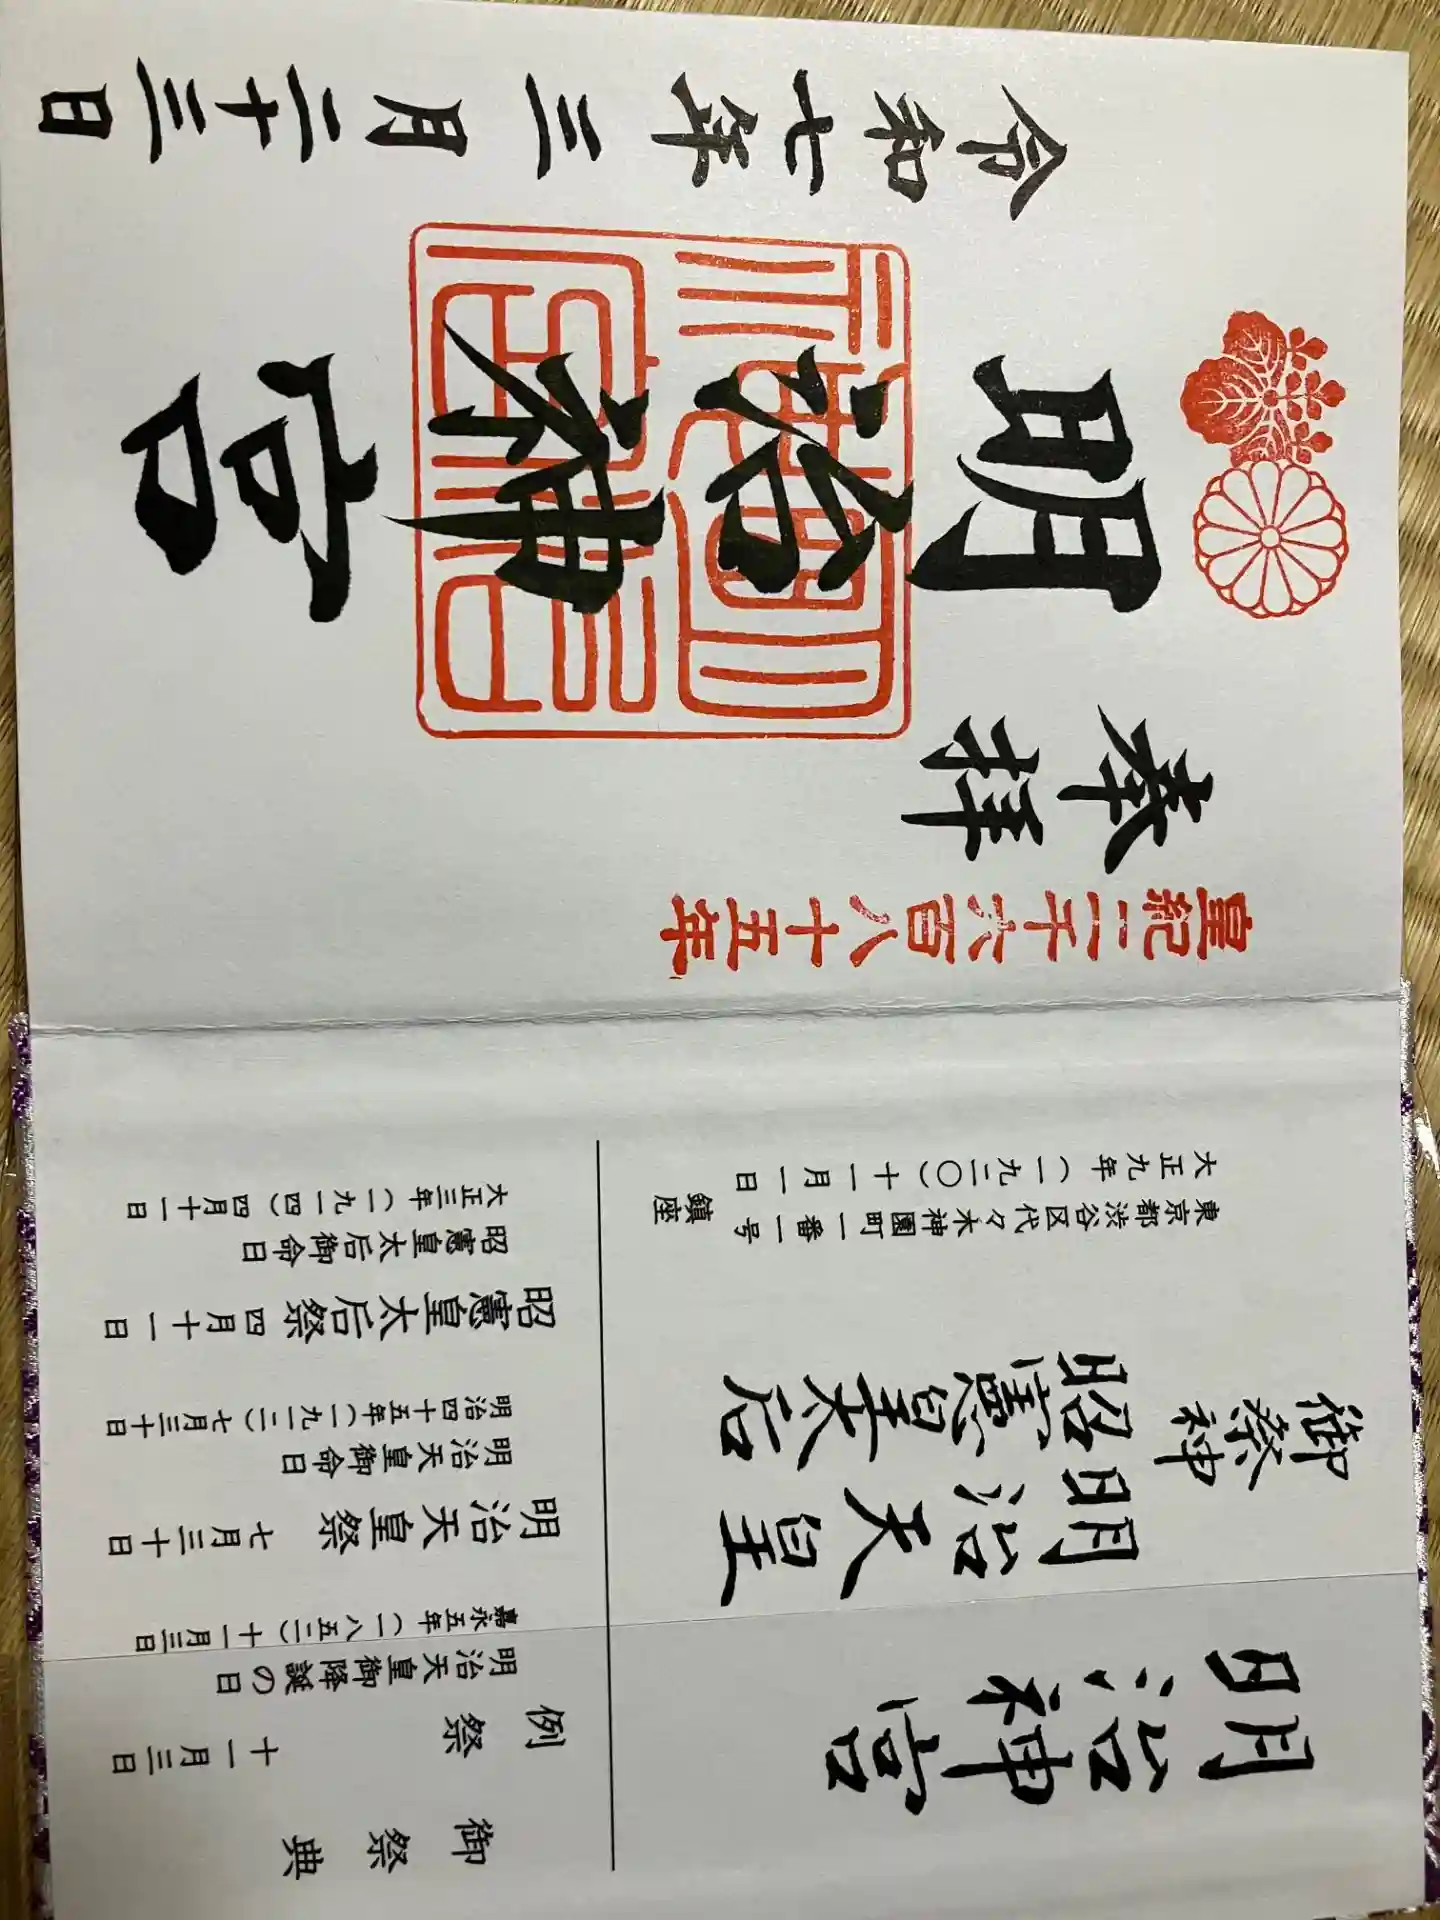 明治神宮
御祭神
明治天皇
昭憲皇太后
東京都渋谷区代々木神園町一番一号
大正九年（一九二〇）十一月一日
鎮座
御祭典
例祭 十一月三日
明治天皇御降誕の日
嘉永五年（一八五二）十一月三日
明治天皇祭 七月三十日
明治天皇御命日
明治四十五年（一九一二）七月三十日
昭憲皇太后祭 四月十一日
昭憲皇太后御命日
大正三年（一九一四）四月十一日
皇紀二千六百八十五年
奉拝
明治神宮
令和七年三月二十三日